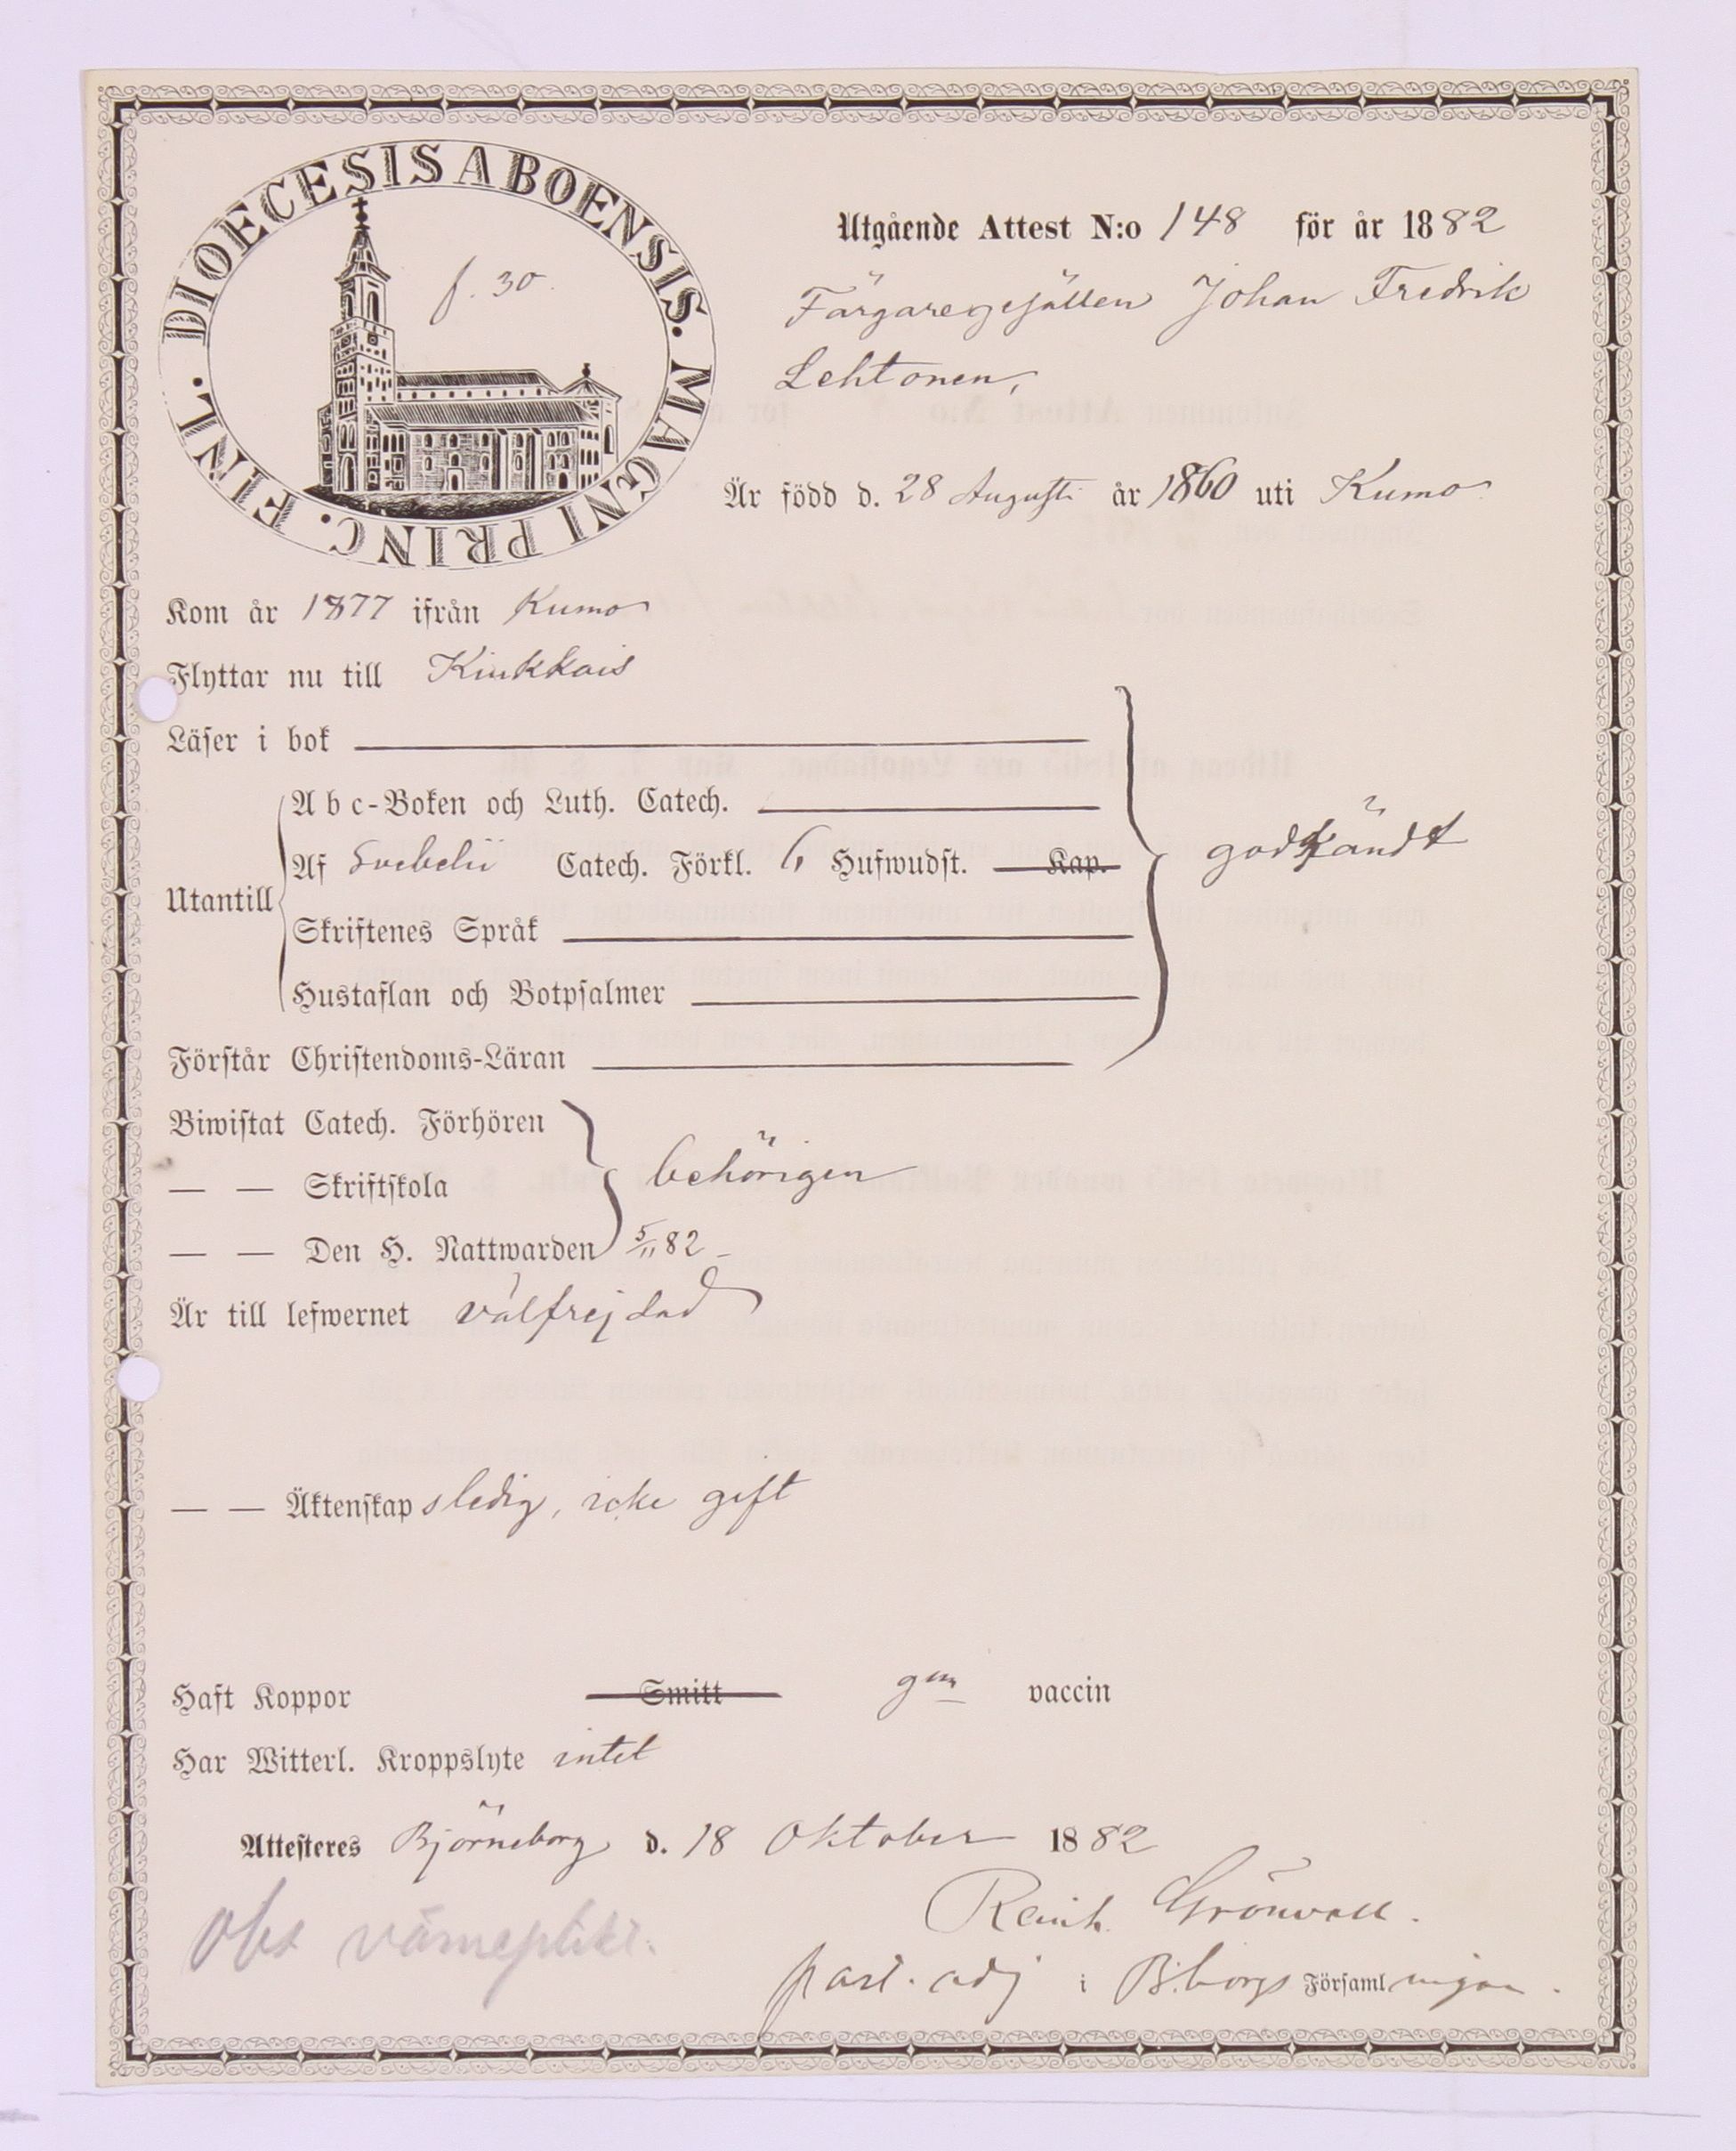 DIOECESIS ABOENSIS. MAGNI PRINC. FINL.
f. 30.
Utgående Attest N:o 148 för år 1882
Färgaregesällen Johan Fredrik
Lehtonen,
Är född d. 28 Augusti år 1860 uti Kumo
Kom år 1877 ifrån Kumo
Flyttar nu till Kiukkais
Läser i bok
Abc-Boken och Luth. Catech.
Af Svebelii Catech. Förkl. 6 Hufwudst. Kap.
godkändt
Utantill
Skriftenes Språk
Hustaflan och Botpsalmer
Förstår Christendoms-Läran
Biwistat Catech. Förhören
— — Skriftskola
behörigen
— — Den H. Nattwarden 5/11 82 -
Är till lefwernet välfrejdad
— — Äktenskap sledig, icke gift
Haft Koppor Smitt gm vaccin
Har Witterl. Kroppslyte intet
Attesteres Björneborg d. 18 Oktober 1882
Reinh. Grönvall.
Obs värneplikt.
past. adj i B:borgs Församlingen.